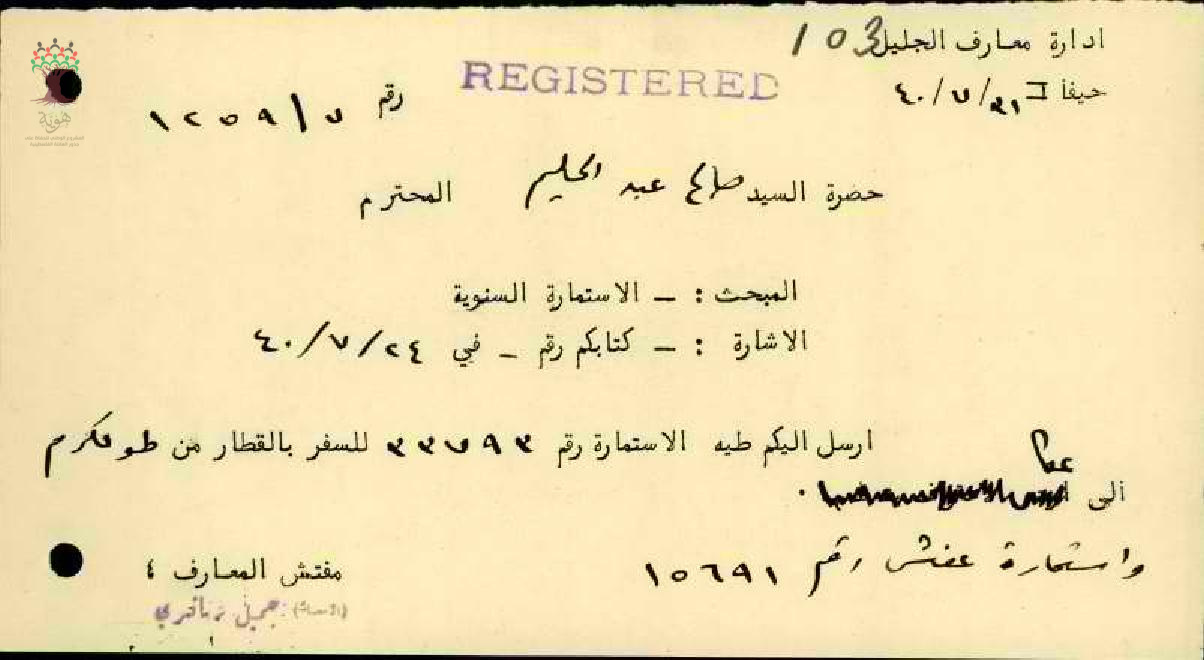 ادارة معارف الجليل 103
حيفا في ٣١/٧/٤٠
REGISTERED
رقم ٧/١٢٥٩
هوية
حضرة السيد صالح عبد الحليم المحترم
المبحث : – الاستمارة السنوية
الاشارة : – كتابكم رقم – في ٢٤/٧/٤٠
ارسل اليكم طيه الاستمارة رقم ٣٣٧٩٣ للسفر بالقطار من طولكرم
عكا
الى .
واستمارة عفش رقم ١٥٦٩١
مفتش المعارف ؛
(الامضاء) : جميل